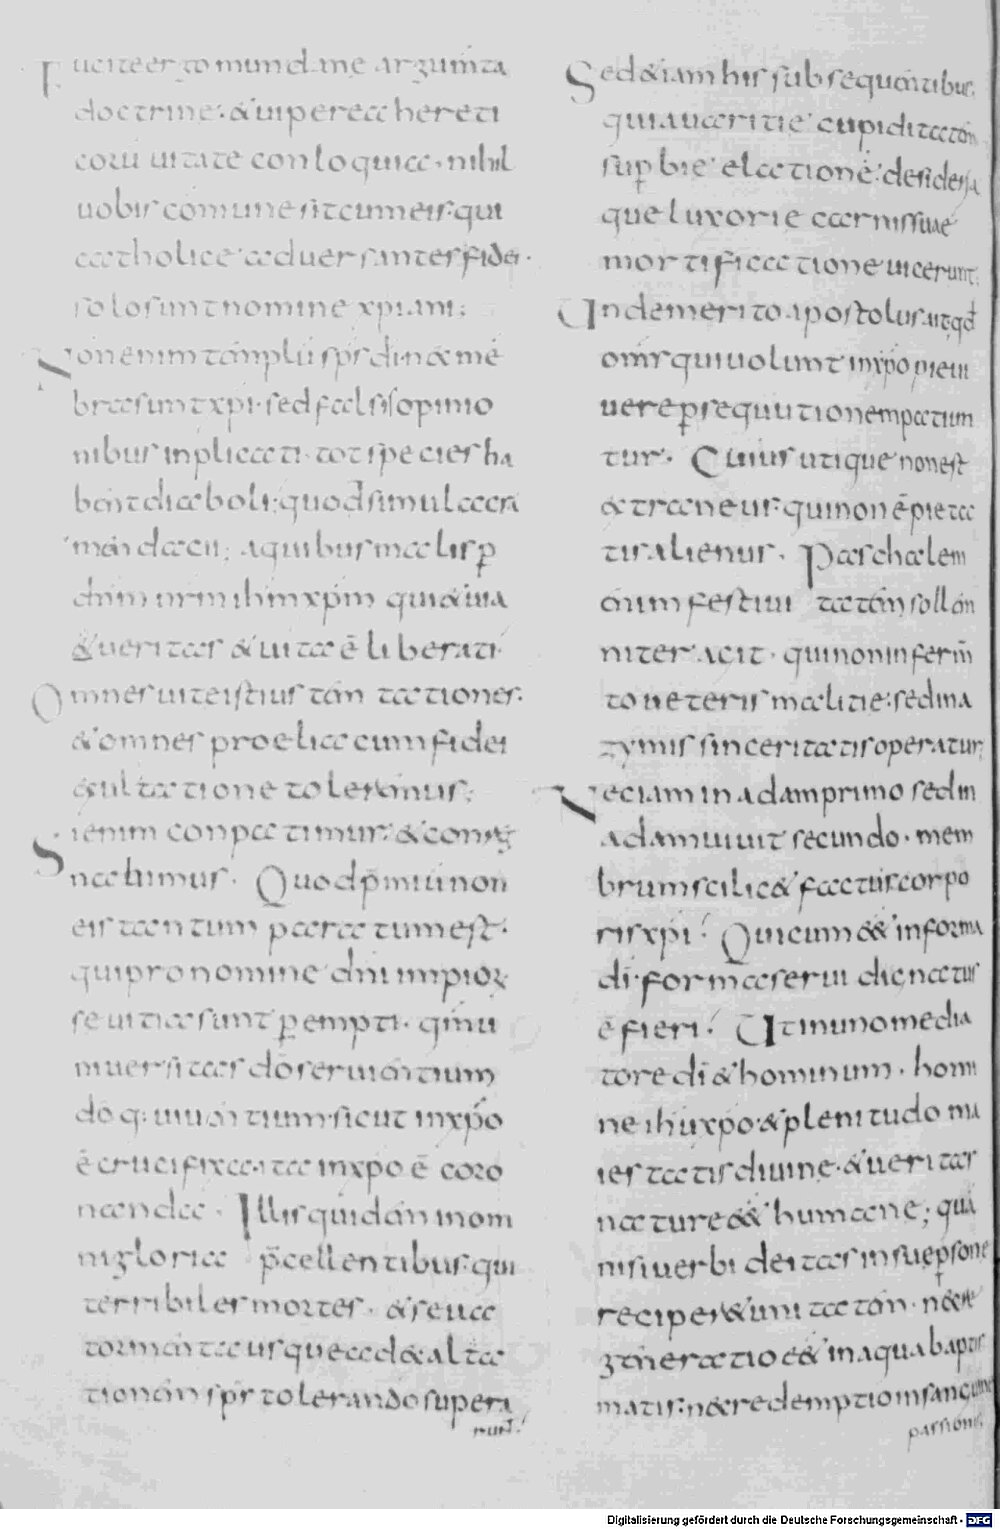 Fugite ergo mundane argum̄ta
doctrine: & uipereas hereti
corū uitate conloquia. nihil
uobis cōmune sit cum eis: qui
catholice aduersantes fidei.
solo sunt nomine xp̄iani:
Non enim tēmplū sp̄s d̄i. n& mē
bra sunt xp̄i. sed falsis opinio
nibus inplicati. tot species ha
bent diaboli: quod simulacra
mendacii; a quibus malis p̄
dn̄m nrm ihm xpm̄ qui & uia
& ueritas & uita ē liberati.
Omnes uite istius tēmtationes:
& omnes proelia cum fidei
exultatione toleremus;
Si enim conpatimur: & conreg
nabimus. Quod p̄miū non
eis tantum paratum est.
qui pro nomine dn̄i impior̄
seuitia sunt p̄empti. qm̄ u
niuersitas dō seruientium
dō q: uiuentium: sicut in xp̄o
ē crucifixa. ita in xp̄o ē coro
nanda. Illis quidem in om
ni gloria p̄cellentibus: qui
terribiles mortes. & seua
tormenta usque ad exalta
tionem sp̄s tolerando supera
runt:
Sed & iam his subsequentibus,
qui auaritie cupiditatem
sup̄bie elationē: desideria
que luxorie carnis suae
mortificatione uicerunt:
Unde merito apostolus. ait qd
om̄s qui uolunt in xp̄o pie ui
uere p̄sequutionem patiun
tur. Cuius utique non est
extraneus: qui non ē pieta
tis alienus. Paschalem
enim festiuitatem sollem
niter agit. qui non in ferm̄
to ueteris malitie: sed in a
zymis sinceritatis operatur:
Nec iam in adam primo sed in
adam uiuit secundo. mem
brum scilic& factus corpo
ris xp̄i: Qui cum ee& in forma
d̄i. forma serui dignatus
ē fieri: Ut in uno media
tore d̄i & hominum. homi
ne ihū xp̄o. & plenitudo ma
iestatis diuine. & ueritas
nature ee& humane; quā
nisi uerbi deitas in sue p̄sone
recipere& unitatem. n& ee&
generatio ee& in aqua baptis
matis: n& redemptio in sanguine
passionis,
Digitalisierung gefördert durch die Deutsche Forschungsgemeinschaft - DFG